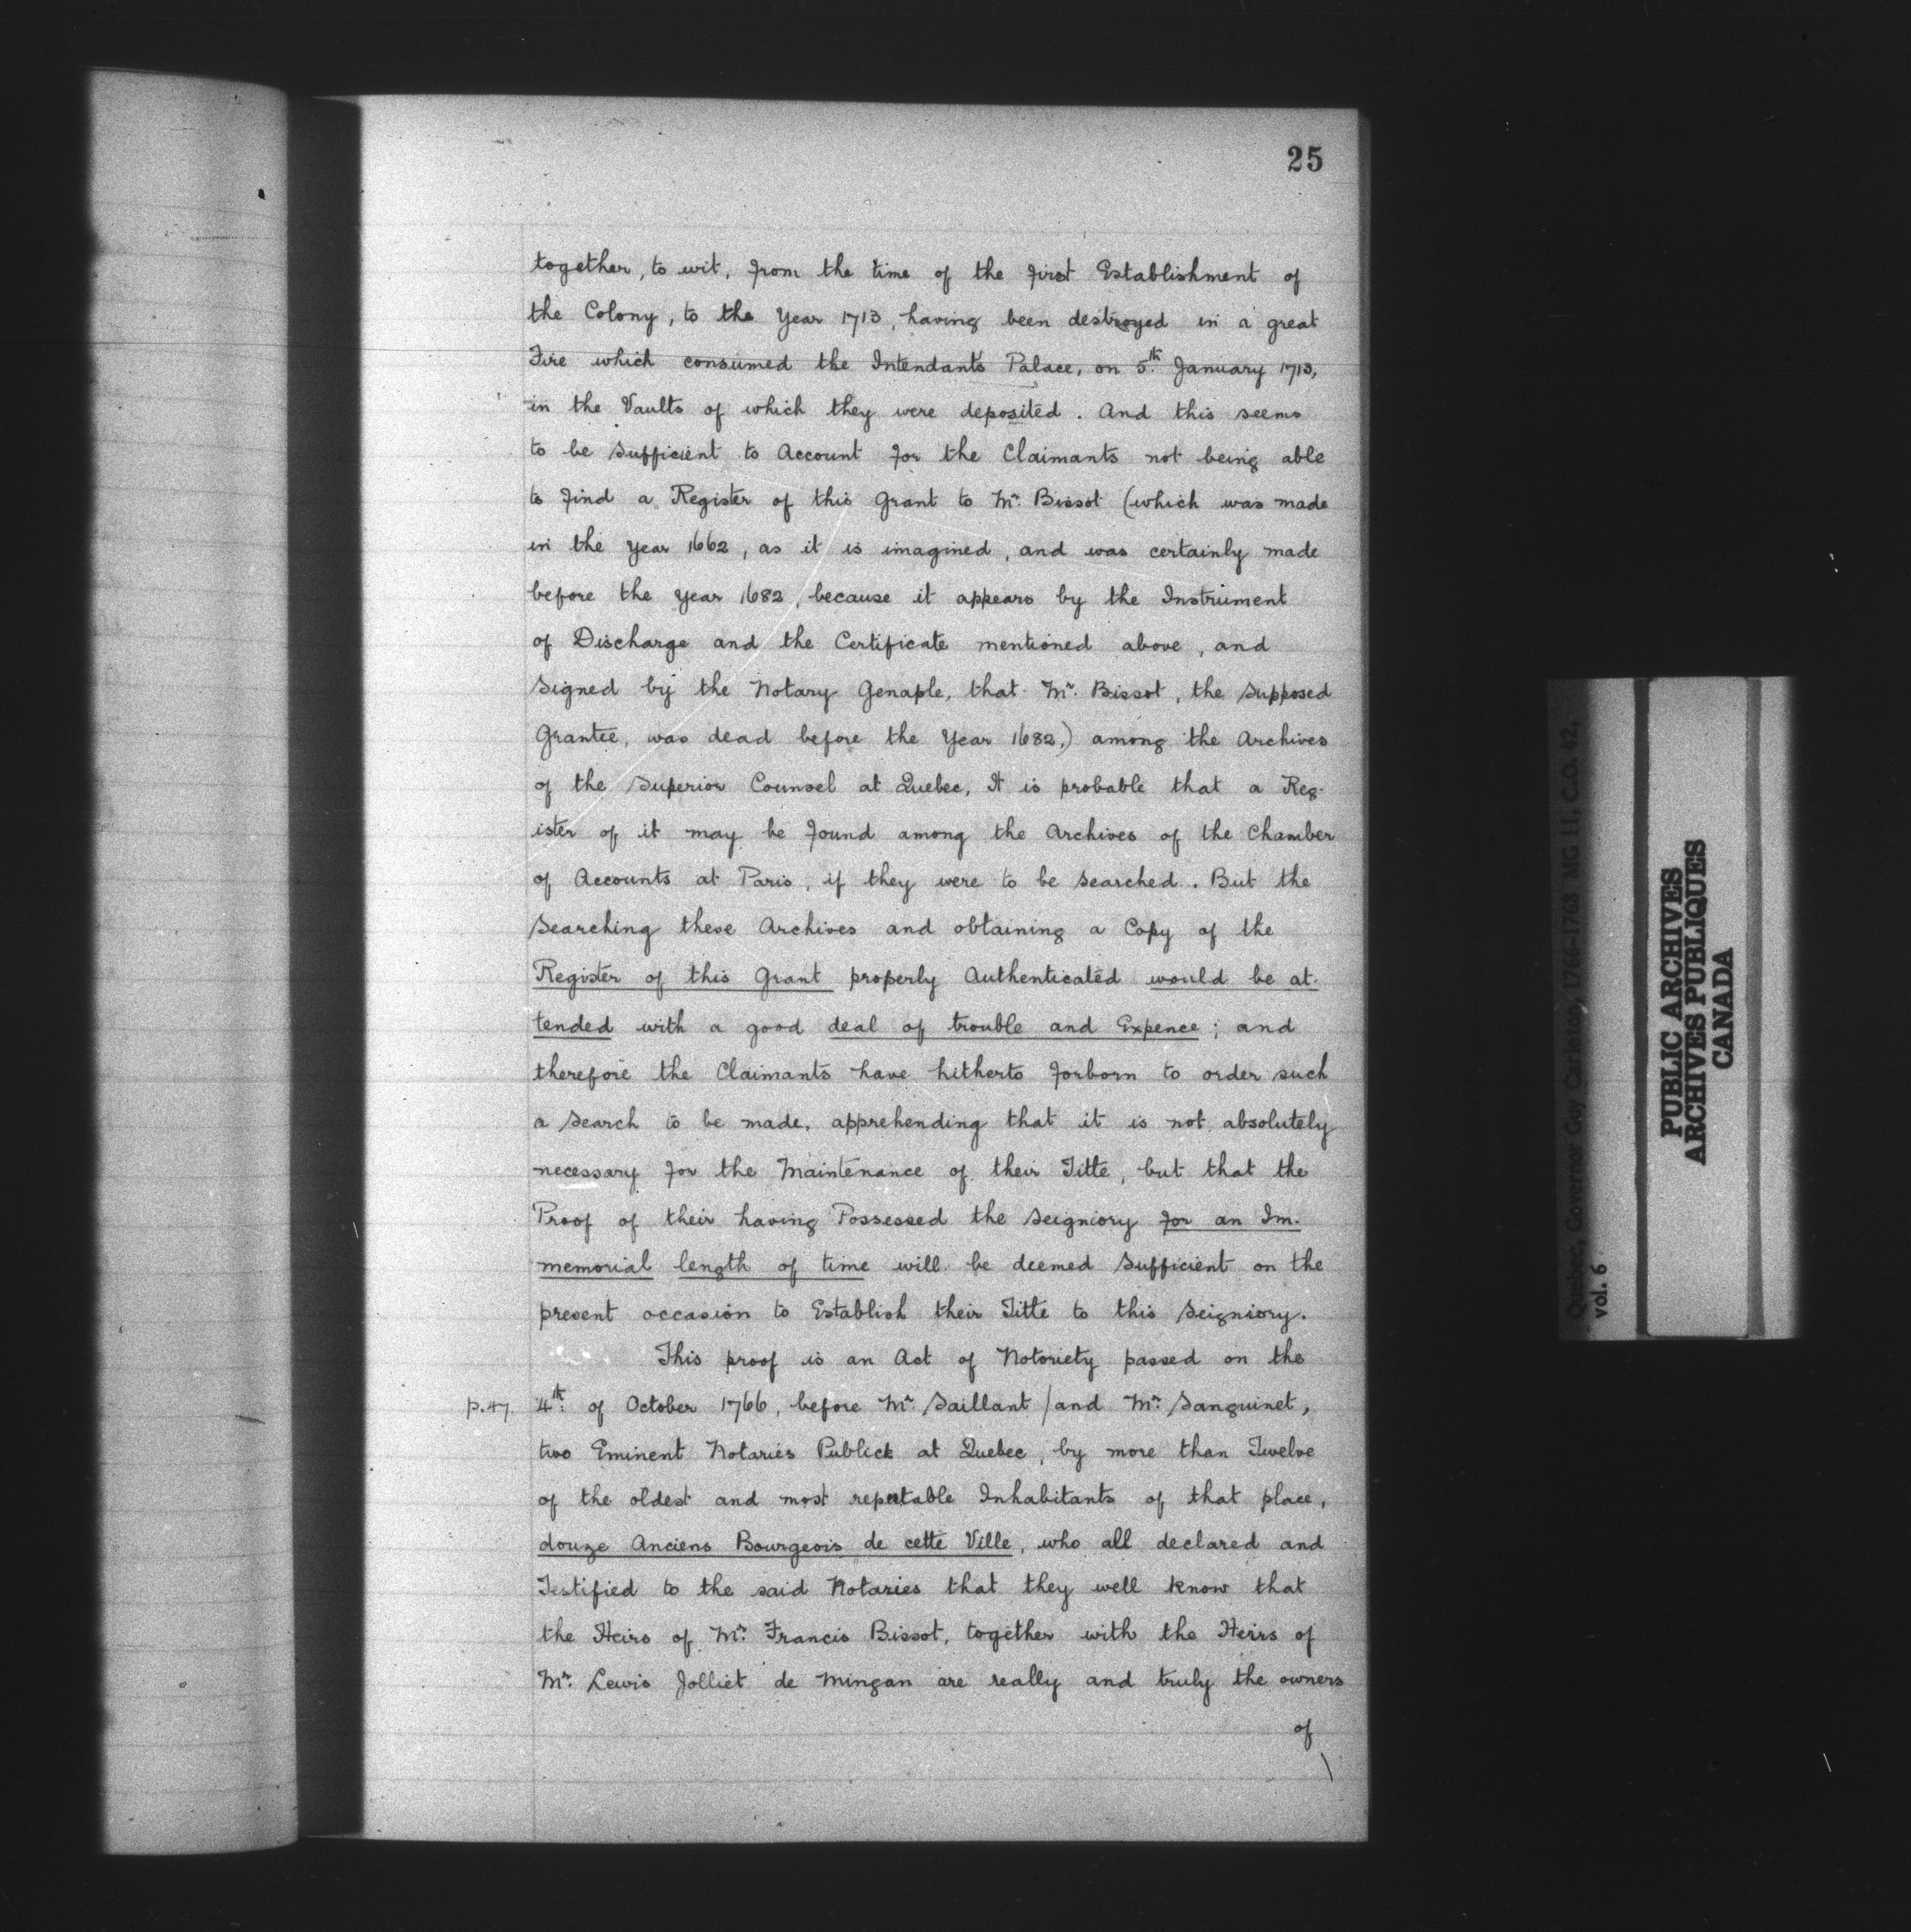 25
together, to wit, from the time of the first Establishment of
the Colony, to the Year 1713, having been destroyed in a great
Fire which consumed the Intendant's Palace, on 5th. January 1713,
in the Vaults of which they were deposited. And this seems
to be sufficient to Account for the Claimants not being able
to find a Register of this Grant to Mr. Bissot (which was made
in the Year 1662, as it is imagined, and was certainly made
before the Year 1682, because it appears by the Instrument
of Discharge and the Certificate mentioned above, and
Signed by the Notary Genaple, that Mr. Bissot, the Supposed
Grantee, was dead before the Year 1682,) among the Archives
of the Superior Counsel at Quebec, It is probable that a Reg-
ister of it may be found among the Archives of the Chamber
of Accounts at Paris, if they were to be Searched. But the
Searching these Archives and obtaining a Copy of the
Register of this Grant properly Authenticated would be at-
tended with a good deal of trouble and Expence; and
therefore the Claimants have hitherto forborn to order such
a Search to be made, apprehending that it is not absolutely
necessary for the Maintenance of their Title, but that the
Proof of their having Possessed the Seigniory for an Im-
memorial length of time will be deemed Sufficient on the
present occasion to Establish their Title to this Seigniory.
This proof is an Act of Notoriety passed on the
p.47. 4th. of October 1766, before Mr. Saillant / and Mr. Sanguinet,
two Eminent Notaries Publick at Quebec, by more than Twelve
of the oldest and most reputable Inhabitants of that place,
douze Anciens Bourgeois de cette Ville, who all declared and
Testified to the said Notaries that they well know that
the Heirs of Mr. Francis Bissot, together with the Heirs of
Mr. Lewis Jolliet de Mingan are really and truly the owners
of
Quebec, Governor Guy Carleton, 1766-1768 MG 11, C.O. 42,
vol. 6
PUBLIC ARCHIVES
ARCHIVES PUBLIQUES
CANADA